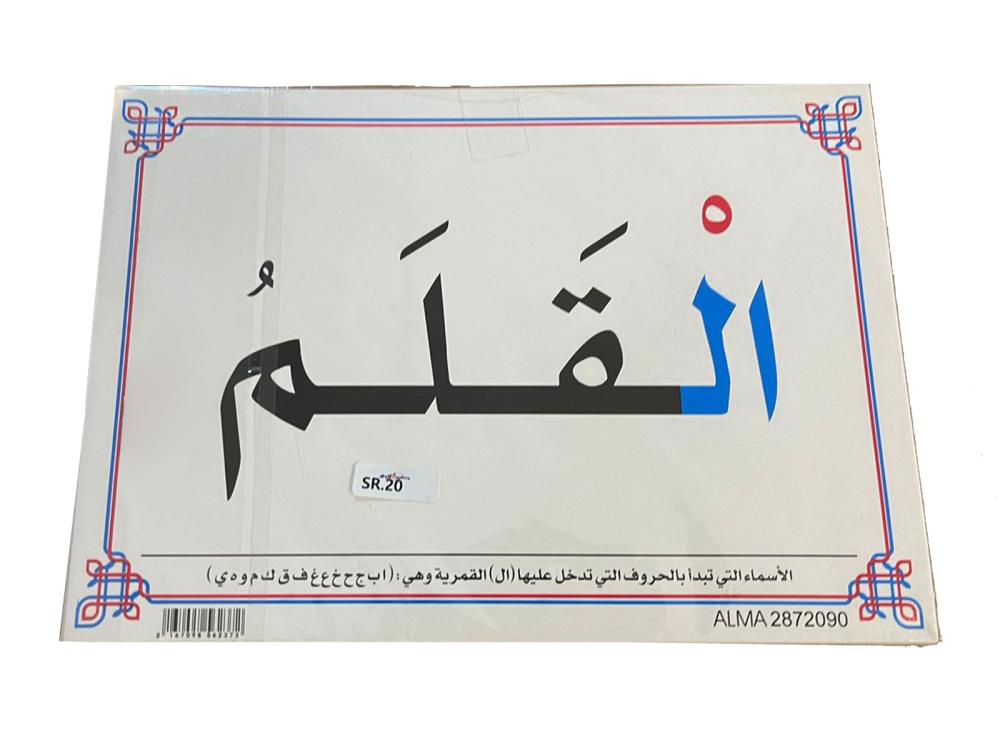 الْقَلَمُ
SR.20
الأسماء التي تبدأ بالحروف التي تدخل عليها (ال) القمرية وهي: (ا ب ج ح خ ع غ ف ق ك م و ه ي)
2 167098 062373
ALMA 2872090